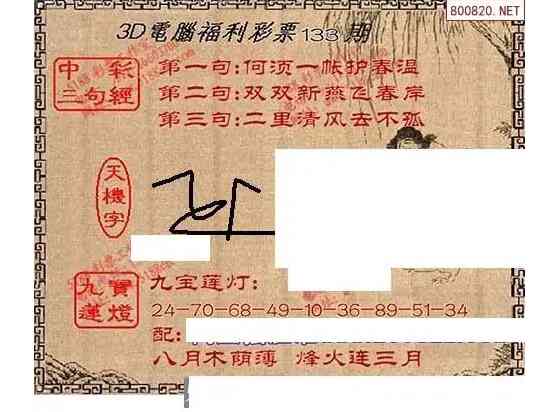 800820.NET
3D電腦福利彩票133期
中彩三句經
第一句:何须一帐护春温
第二句:双双新燕飞春岸
第三句:二里清风去不孤
天機字
九寶蓮燈
九宝莲灯:
24-70-68-49-10-36-89-51-34
配:
八月木荫薄 烽火连三月